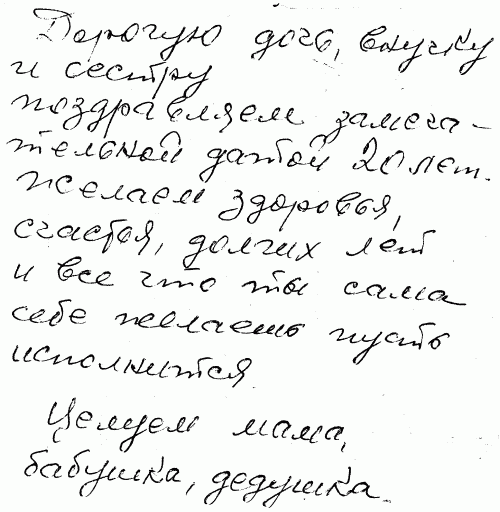 Дорогую дочь, внучку
и сестру
поздравляем замеча-
тельной датой 20 лет.
Желаем здоровья,
счастья, долгих лет
и все что ты сама
себе желаешь пусть
исполнится
Целуем мама,
бабушка, дедушка.